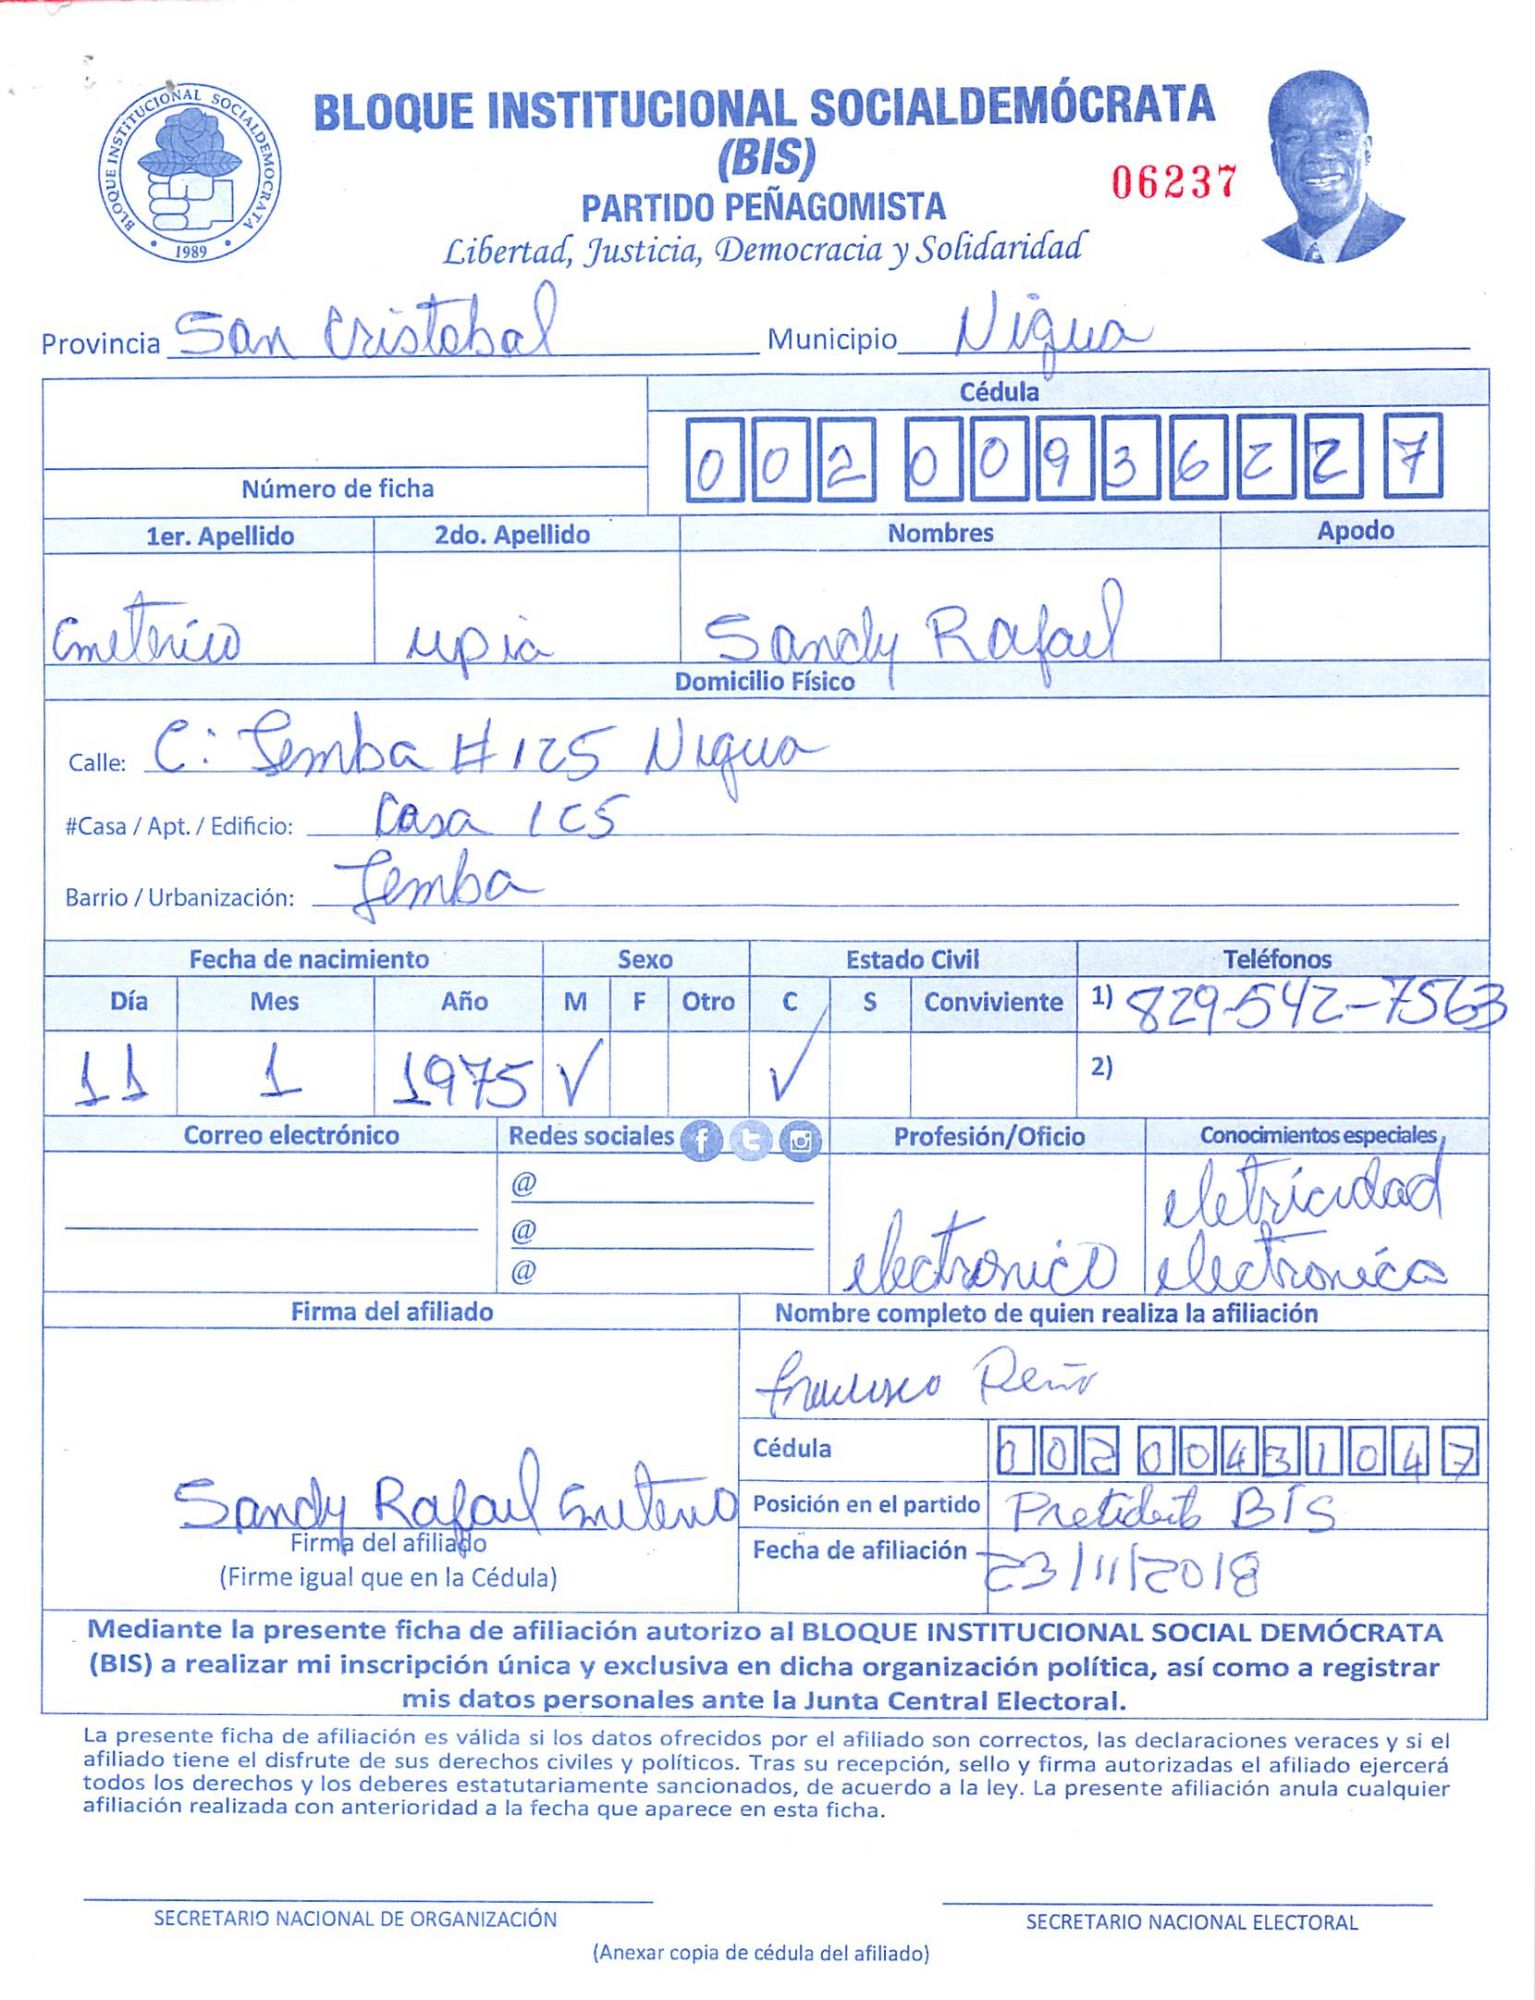 BLOQUE INSTITUCIONAL SOCIALDEMÓCRATA
(BIS)
PARTIDO PEÑAGOMISTA
06237
Libertad, Justicia, Democracia y Solidaridad
BLOQUE INSTITUCIONAL SOCIALDEMOCRATA
1989
Provincia San Cristobal Municipio Nigua
Cédula
002 0093622 7
Número de ficha
1er. Apellido 2do. Apellido Nombres Apodo
Emeterico upia Sandy Rafael
Domicilio Físico
Calle: C: Lemba #125 Nigua
#Casa / Apt. / Edificio: Casa 1C5
Barrio / Urbanización: Lemba
Fecha de nacimiento Sexo Estado Civil Teléfonos
Día Mes Año M F Otro C S Conviviente 1) 829-542-7563
11 1 1975 ✓ ✓ 2)
Correo electrónico Redes sociales Profesión/Oficio Conocimientos especiales
@
@
@
eletricidad
electronico electronica
Firma del afiliado Nombre completo de quien realiza la afiliación
Francisco Peña
Cédula 002 0043104 7
Sandy Rafael Emeterio
Posición en el partido Pretidente BIS
Firma del afiliado
Fecha de afiliación 23/11/2018
(Firme igual que en la Cédula)
Mediante la presente ficha de afiliación autorizo al BLOQUE INSTITUCIONAL SOCIAL DEMÓCRATA
(BIS) a realizar mi inscripción única y exclusiva en dicha organización política, así como a registrar
mis datos personales ante la Junta Central Electoral.
La presente ficha de afiliación es válida si los datos ofrecidos por el afiliado son correctos, las declaraciones veraces y si el
afiliado tiene el disfrute de sus derechos civiles y políticos. Tras su recepción, sello y firma autorizadas el afiliado ejercerá
todos los derechos y los deberes estatutariamente sancionados, de acuerdo a la ley. La presente afiliación anula cualquier
afiliación realizada con anterioridad a la fecha que aparece en esta ficha.
SECRETARIO NACIONAL DE ORGANIZACIÓN SECRETARIO NACIONAL ELECTORAL
(Anexar copia de cédula del afiliado)